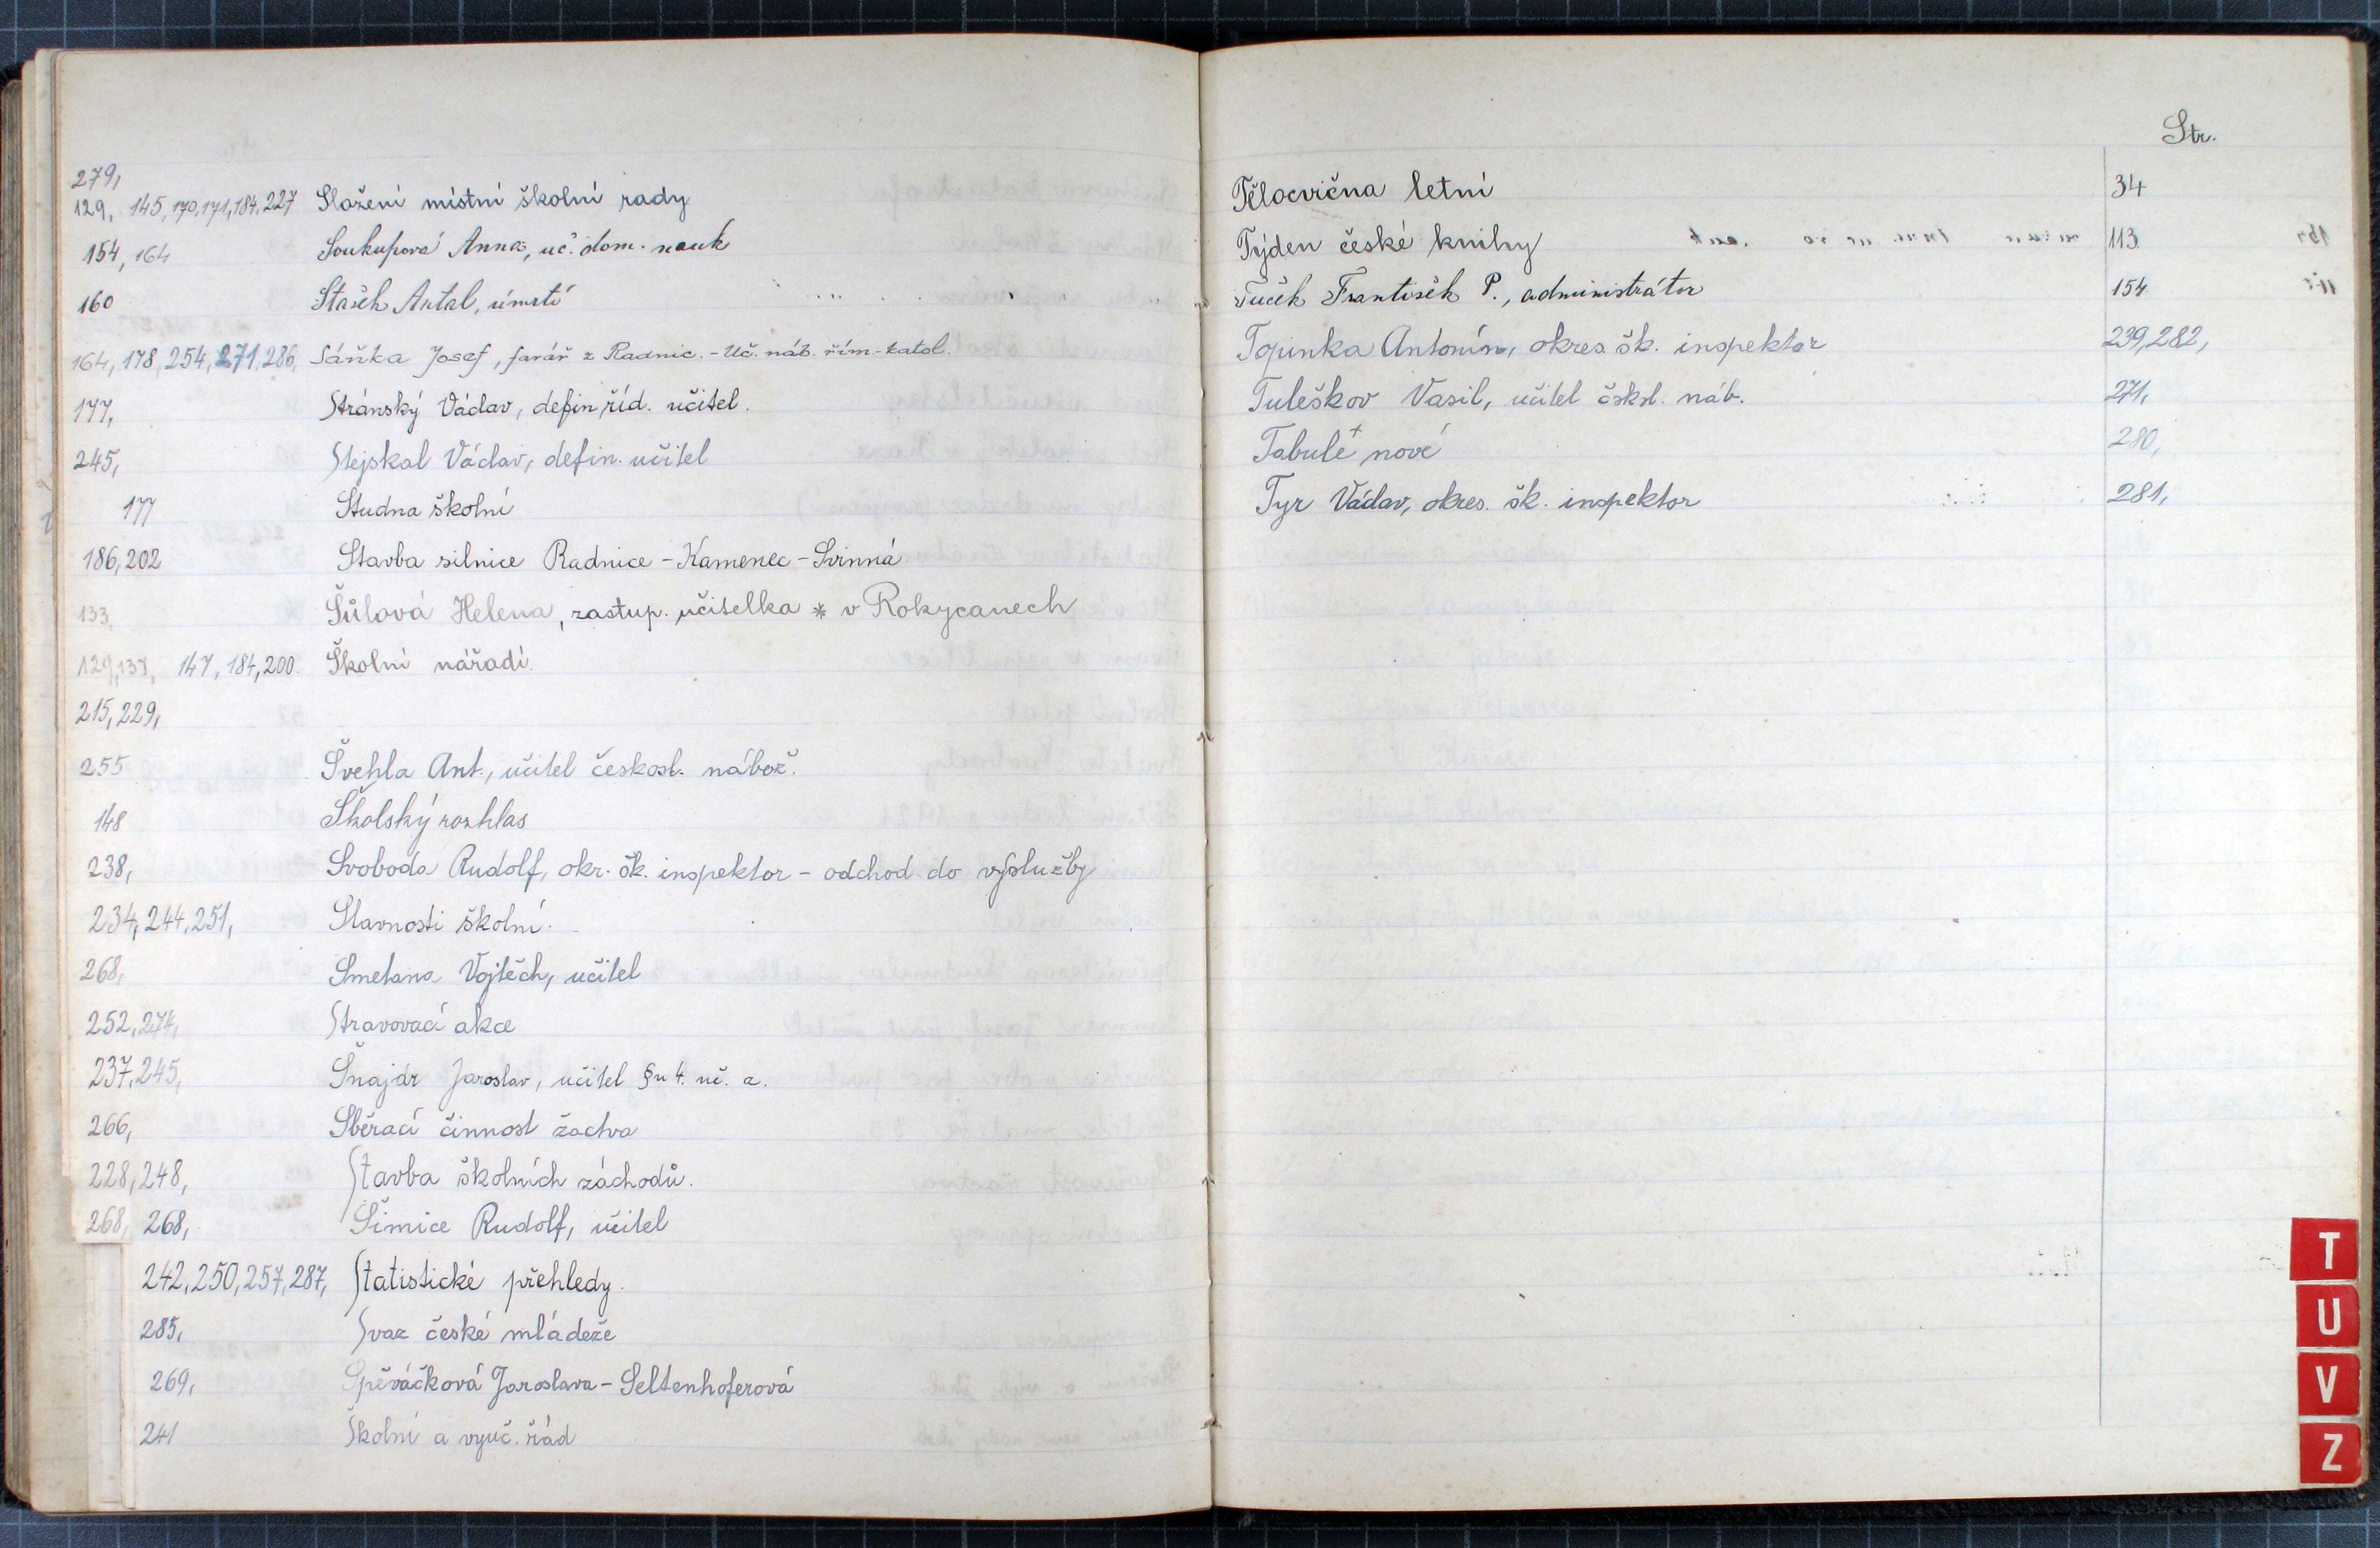 279,
129, 145, 170, 171, 184, 227 Složení místní školní rady
154, 164 Soukupová Anna, uč. dom. nauk
160 Stašek Antal, úmrtí
164, 178, 254, 271, 286, Sáňka Josef, farář z Radnic. - Uč. náb. řím-katol.
177, Stránský Václav, defin. říd. učitel.
245, Stejskal Václav, defin. učitel
177 Studna školní
186, 202 Stavba silnice Radnice - Kamenec - Svinná
133, Šůlová Helena, zastup. učitelka * v Rokycanech
129, 137, 147, 184, 200. Školní nářadí.
215, 229,
255 Švehla Ant., učitel českosl. nábož.
148 Školský rozhlas
238, Svoboda Rudolf, okr. šk. inspektor - odchod do výslužby
234, 244, 251, Slavnosti školní.
268, Smetana Vojtěch, učitel
252, 274, Stravovací akce
237, 245, Šnajdr Jaroslav, učitel §u 4. uč. z.
266, Sběrací činnost žactva
228, 248, Stavba školních záchodů.
268, 268, Šimice Rudolf, učitel
242, 250, 257, 287, Statistické přehledy.
285, Svaz české mládeže
269, Spěváčková Jaroslava - Seltenhoferová
241 Školní a vyuč. řád
Str.
Tělocvična letní 34
Týden české knihy 113
Tuček František P., administrátor 154
Topinka Antonín, okres. šk. inspektor 239, 282,
Tuleškov Vasil, učitel čsksl. náb. 271,
Tabule nové 280,
Tyr Václav, okres. šk. inspektor 281,
T
U
V
Z